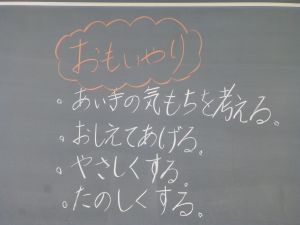 おもいやり
・あいての気もちを考える。
・おしえてあげる。
・やさしくする。
・たのしくする。